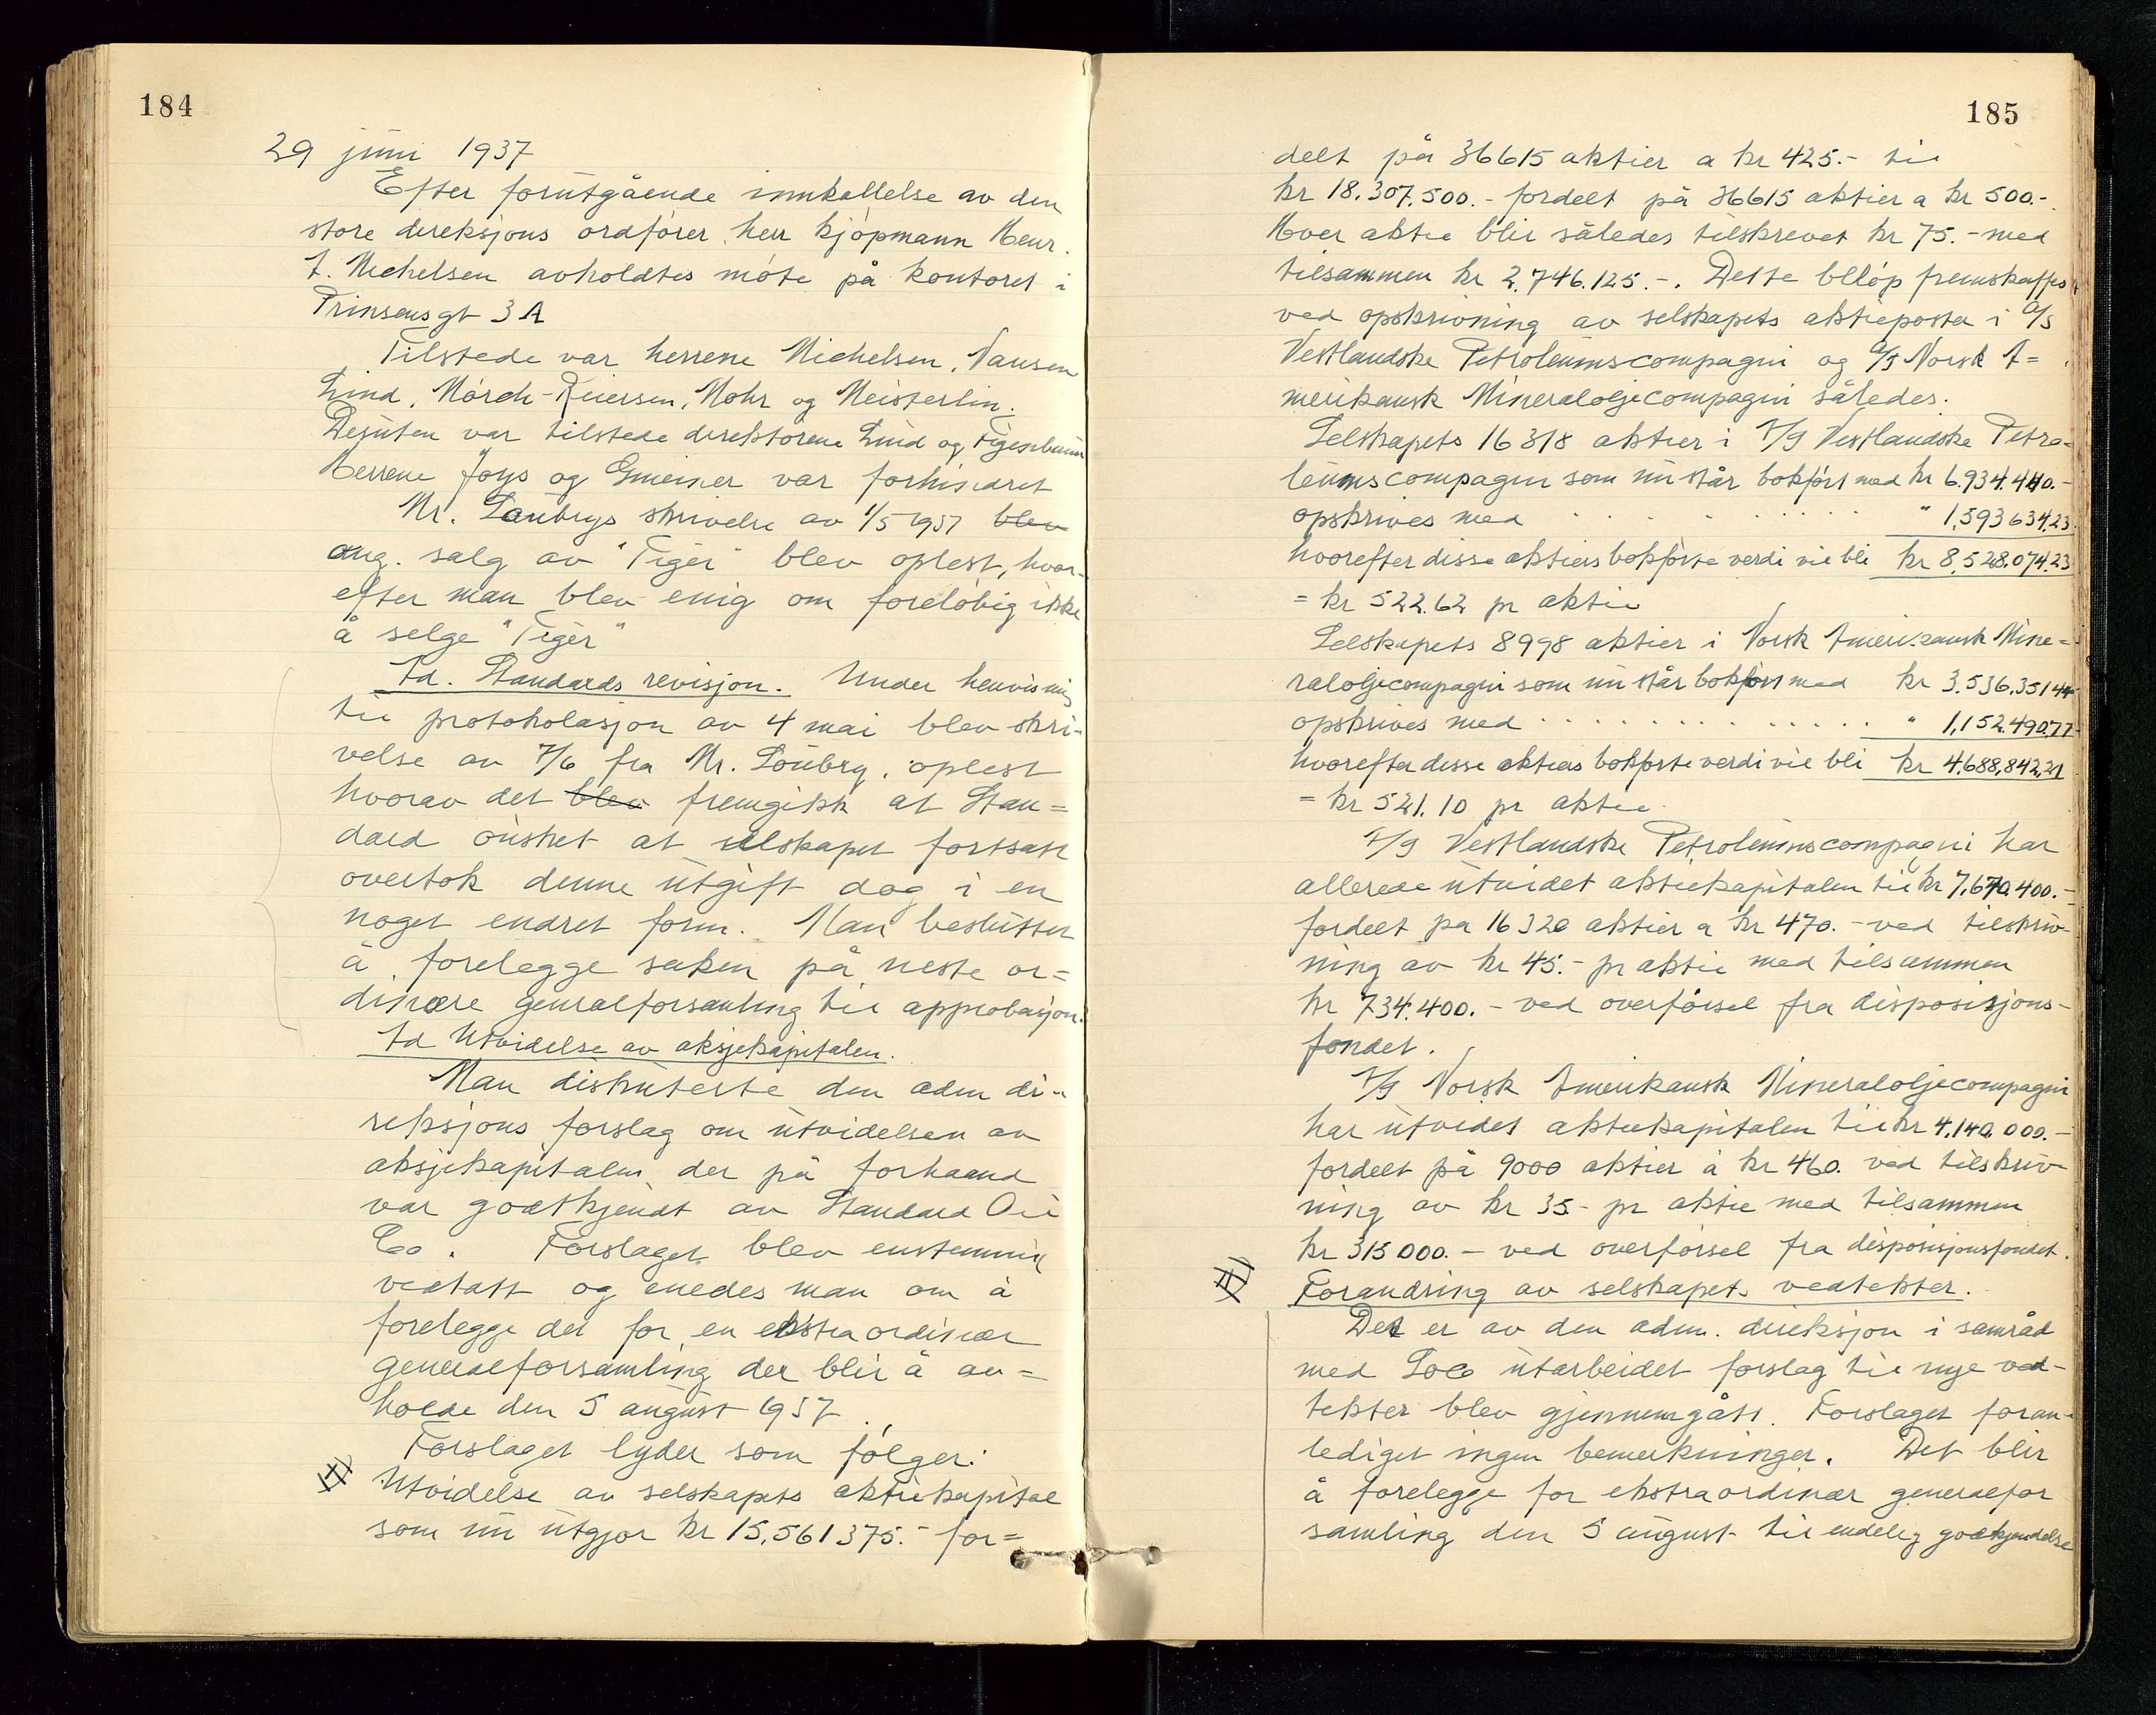 184
29 juni 1937
Efter forutgående innkallelse av den
store direksjons ordfører, herr kjøpmann Henr.
A. Michelsen avholdtes møte på kontoret i
Prinsensgt 3A
Tilstede var herrene Michelsen, Nansen
Lind, Mørch-Reiersen, Mohr og Meisterlin.
Desuten var tilstede direktørene Lind og Figenbaum
Herrene Joys og Gmeiner var forhindret
Mr. Soubrys skrivelse av 1/5 1937 blev
ang. salg av "Tiger" blev oplest, hvor-
efter man blev enig om foreløbig ikke
å selge "Tiger"
Ad. Standards revisjon. Under henvisning
til protokolasjon av 4 mai blev skri-
velse av 7/6 fra Mr. Soubry, oplest
hvorav det blev fremgikk at Stan=
dard ønsket at selskapet fortsatt
overtok denne utgift dog i en
noget endret form. Man besluttet
å forelegge saken på neste or=
dinære generalforsamling til approbasjon.
Ad Utvidelse av aksjekapitalen.
Man diskuterte den adm di-
reksjons forslag om utvidelsen av
aksjekapitalen, der på forhaand
var godtkjendt av Standard Oil
Co. Forslaget blev enstemmig
vedtatt og enedes man om å
forelegge det for en ekstraordinær
generalforsamling der blir å av=
holde den 5 august 1937.
Forslaget lyder som følger:
I) Utvidelse av selskapets aktiekapital
som nu utgjør kr 15.561375.- for=
185
delt på 36615 aktier a kr 425.- til
kr 18.307.500.- fordelt på 36615 aktier a kr 500.-.
Hver aktie blir således tilskrevet kr 75.- med
tilsammen kr 2.746.125.-. Dette beløp fremskaffes
ved opskrivning av selskapets aktieposter i A/S
Vestlandske Petroleumscompagni og A/S Norsk A=
merikansk Mineraloljecompagni således:
Selskapets 16318 aktier i A/S Vestlandske Petro=
leumscompagni som nu står bokført med kr 6.934.440.-
opskrives med . . . . . . . . . " 1,593634,23
hvorefter disse aktiers bokførte verdi vil bli kr 8,528.074,23
= kr 522.62 pr aktie
Selskapets 8998 aktier i Norsk Amerikansk Mine=
raloljecompagni som nu står bokført med kr 3.536.351 44
opskrives med . . . . . . . . . . . . . . . " 1,152.490.77
hvorefter disse aktiers bokførte verdi vil bli kr 4.688,842,21
= kr 521.10 pr aktie.
A/S Vestlandske Petroleumscompagni har
allerede utvidet aktiekapitalen til kr 7,670.400.-
fordelt på 16320 aktier a kr 470.- ved tilskriv-
ning av kr 45.- pr aktie med tilsammen
kr 734.400.- ved overførsel fra disposisjons-
fondet.
A/S Norsk Amerikansk Mineraloljecompagni
har utvidet aktiekapitalen til kr 4,140,000.-
fordelt på 9000 aktier á kr 460. ved tilskriv-
ning av kr 35.- pr aktie med tilsammen
kr 315000.- ved overførsel fra disposisjonsfondet.
II) Forandring av selskapets vedtekter.
Det er av den adm. direksjon i samråd
med Soco utarbeidet forslag til nye ved-
tekter blev gjennemgått. Forslaget foran-
lediget ingen bemerkninger. Det blir
å forelegge for ekstraordinær generalfor
samling den 5 august til endelig godkjendelse